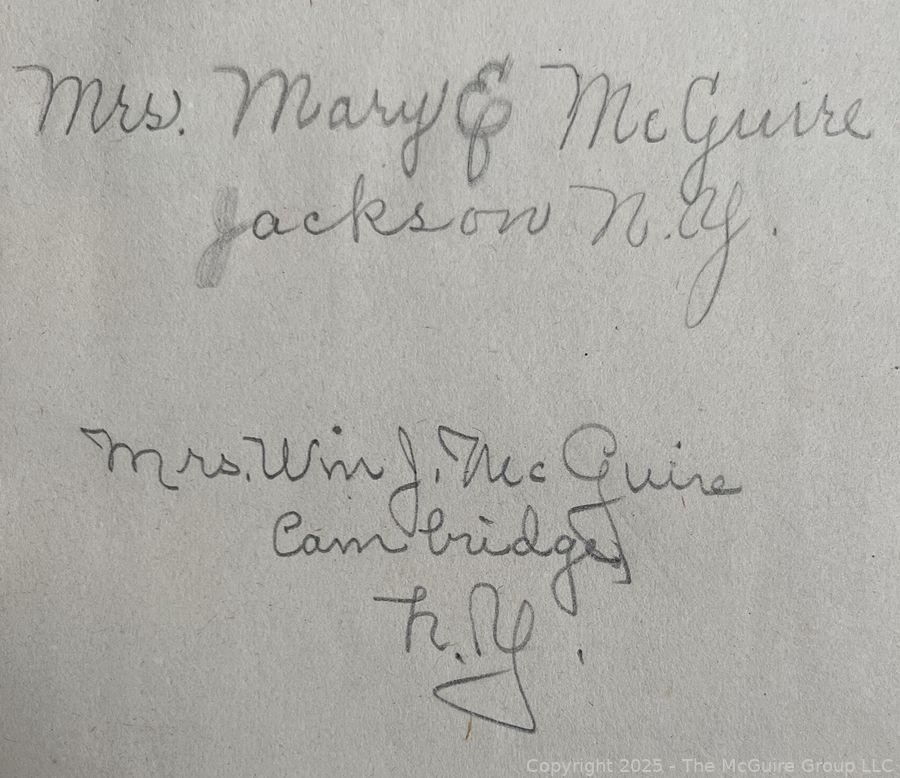 Mrs. Mary E McGuire
Jackson N.Y.
Mrs. Wm J. McGuire
Cambridge,
N.Y.
Copyright 2025 - The McGuire Group LLC